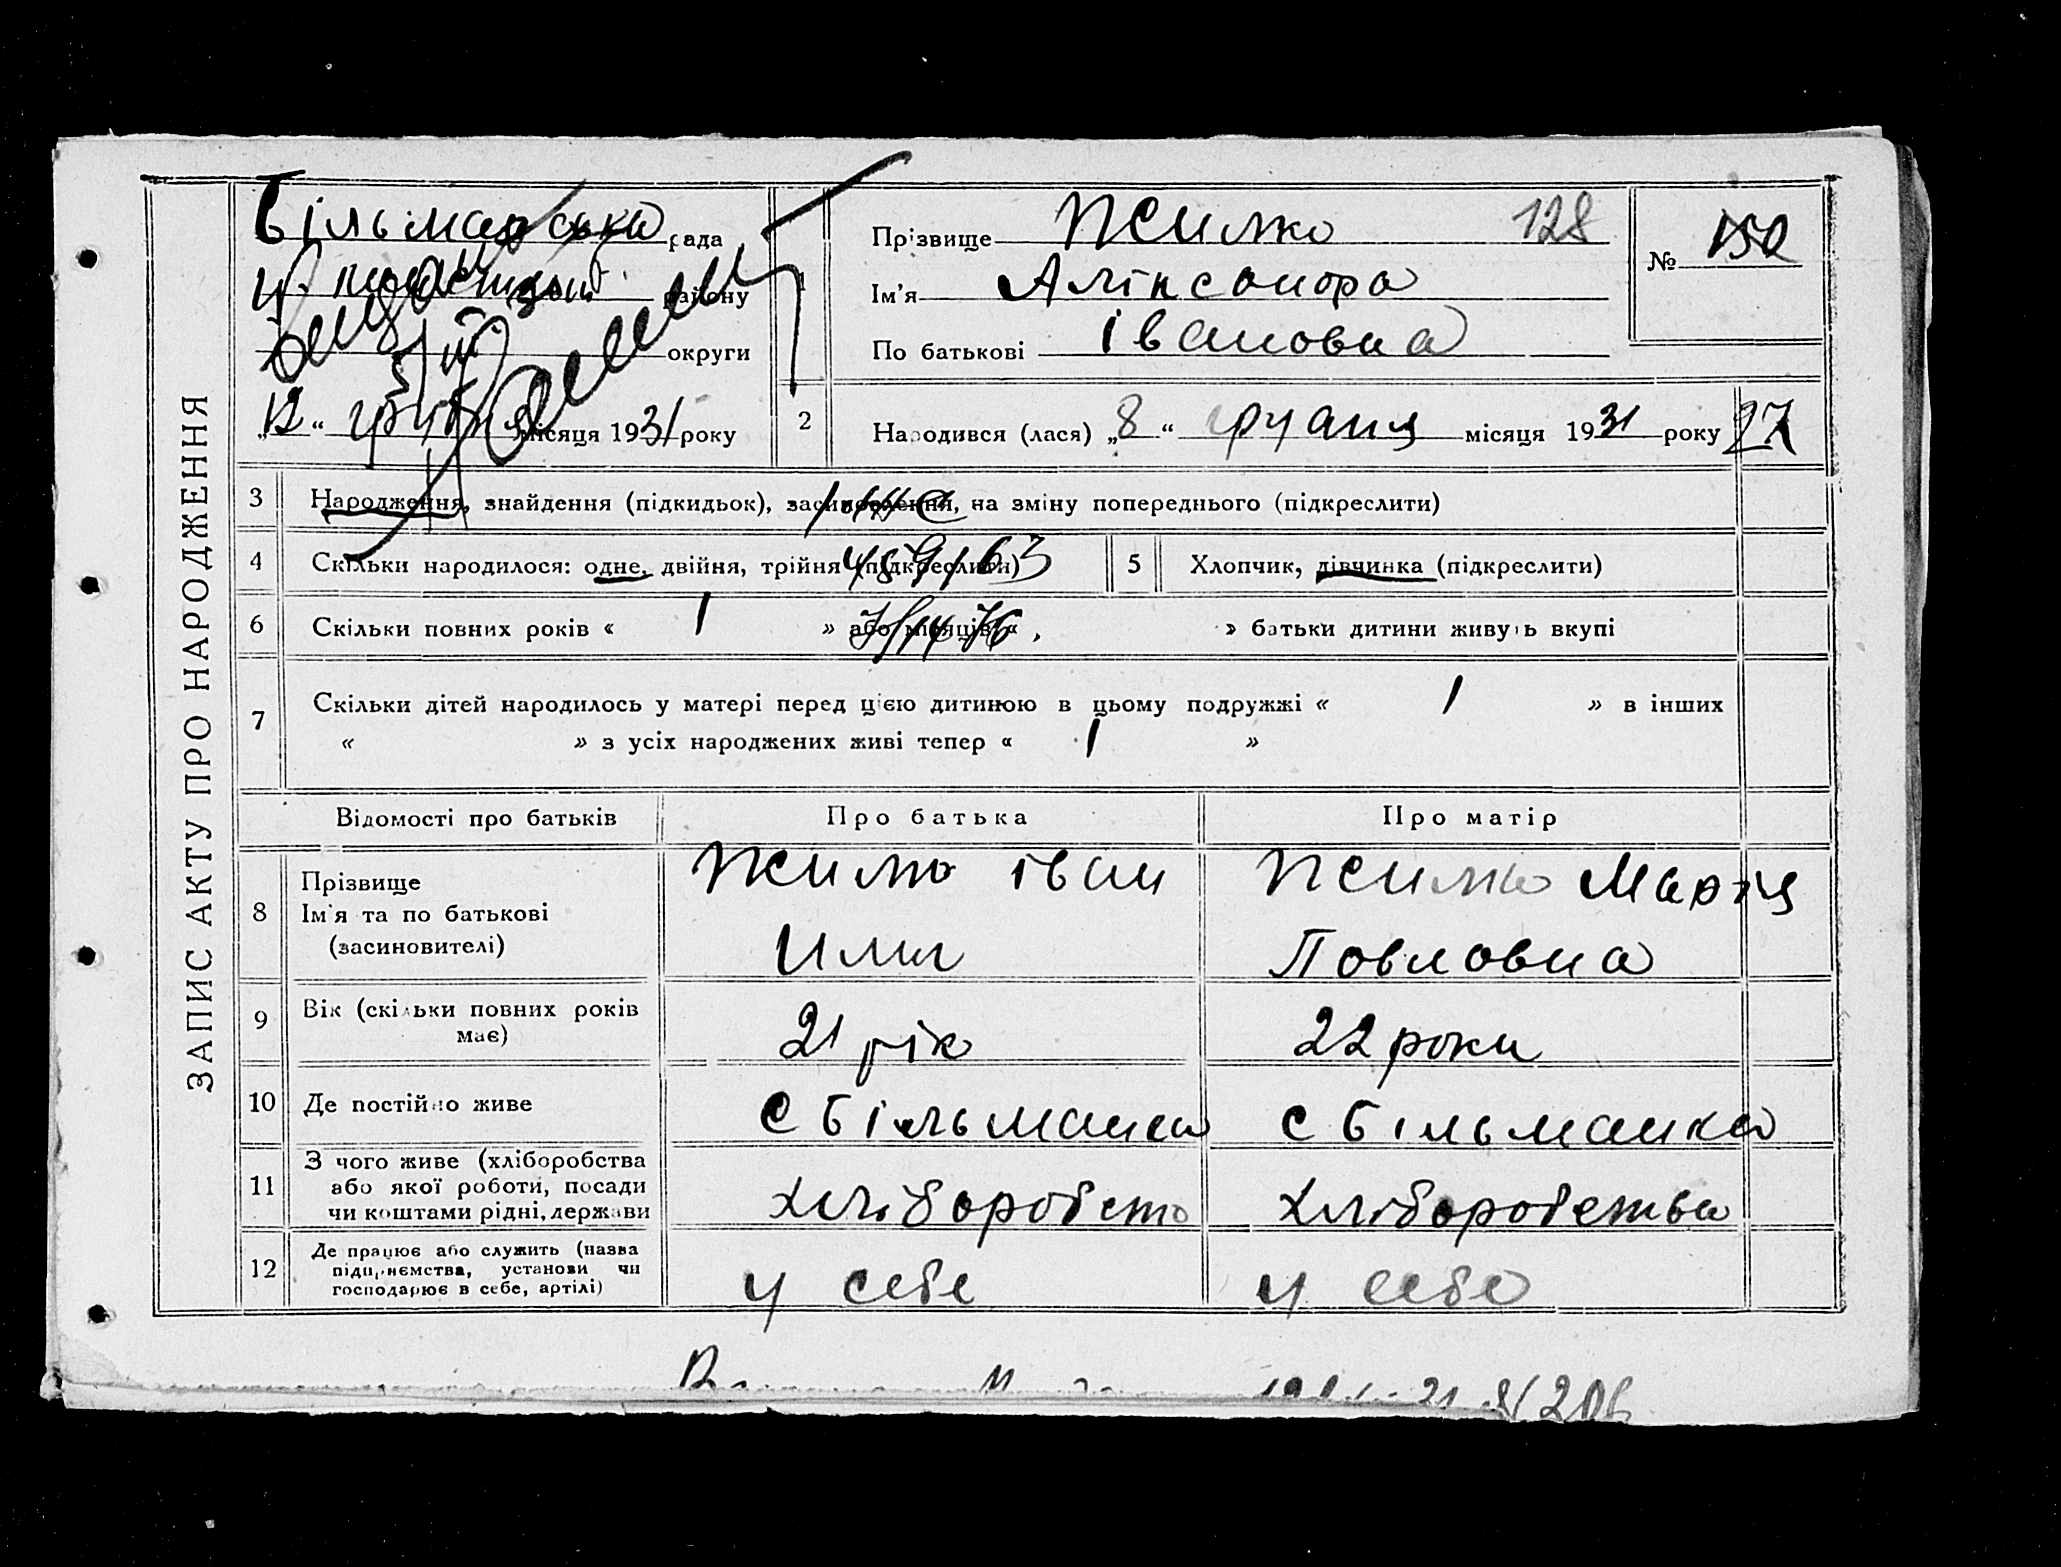 ЗАПИС АКТУ ПРО НАРОДЖЕННЯ
Більманська рада
району
округи
„12“ грудня місяця 1931 року
1
Прізвище Жилко 128
Ім'я Аліксандра
По батькові Івановна
№ 150
2 Народився (лася) „8“ грудня місяця 1931 року 27
3 Народження, знайдення (підкидьок), засиновлення, на зміну попереднього (підкреслити)
4 Скільки народилося: одне, двійня, трійня (підкреслити) 5 Хлопчик, дівчинка (підкреслити)
6 Скільки повних років « 1 » або місяців « » батьки дитини живуть вкупі
7 Скільки дітей народилось у матері перед цією дитиною в цьому подружжі « 1 » в інших
« » з усіх народжених живі тепер « 1 »
Відомості про батьків Про батька Про матір
8 Прізвище Ім'я та по батькові (засиновителі)
Жилко Іван
Жилко Марія
Повловна
9 Вік (скільки повних років має) 21 рік 22 роки
10 Де постійно живе с Більманка с Більманка
11 З чого живе (хліборобства
або якої роботи, посади
чи коштами рідні, держави
хліборобств хліборобства
12 Де працює або служить (назва
підприємства, установи чи
господарює в себе, артілі)
у себе у себе